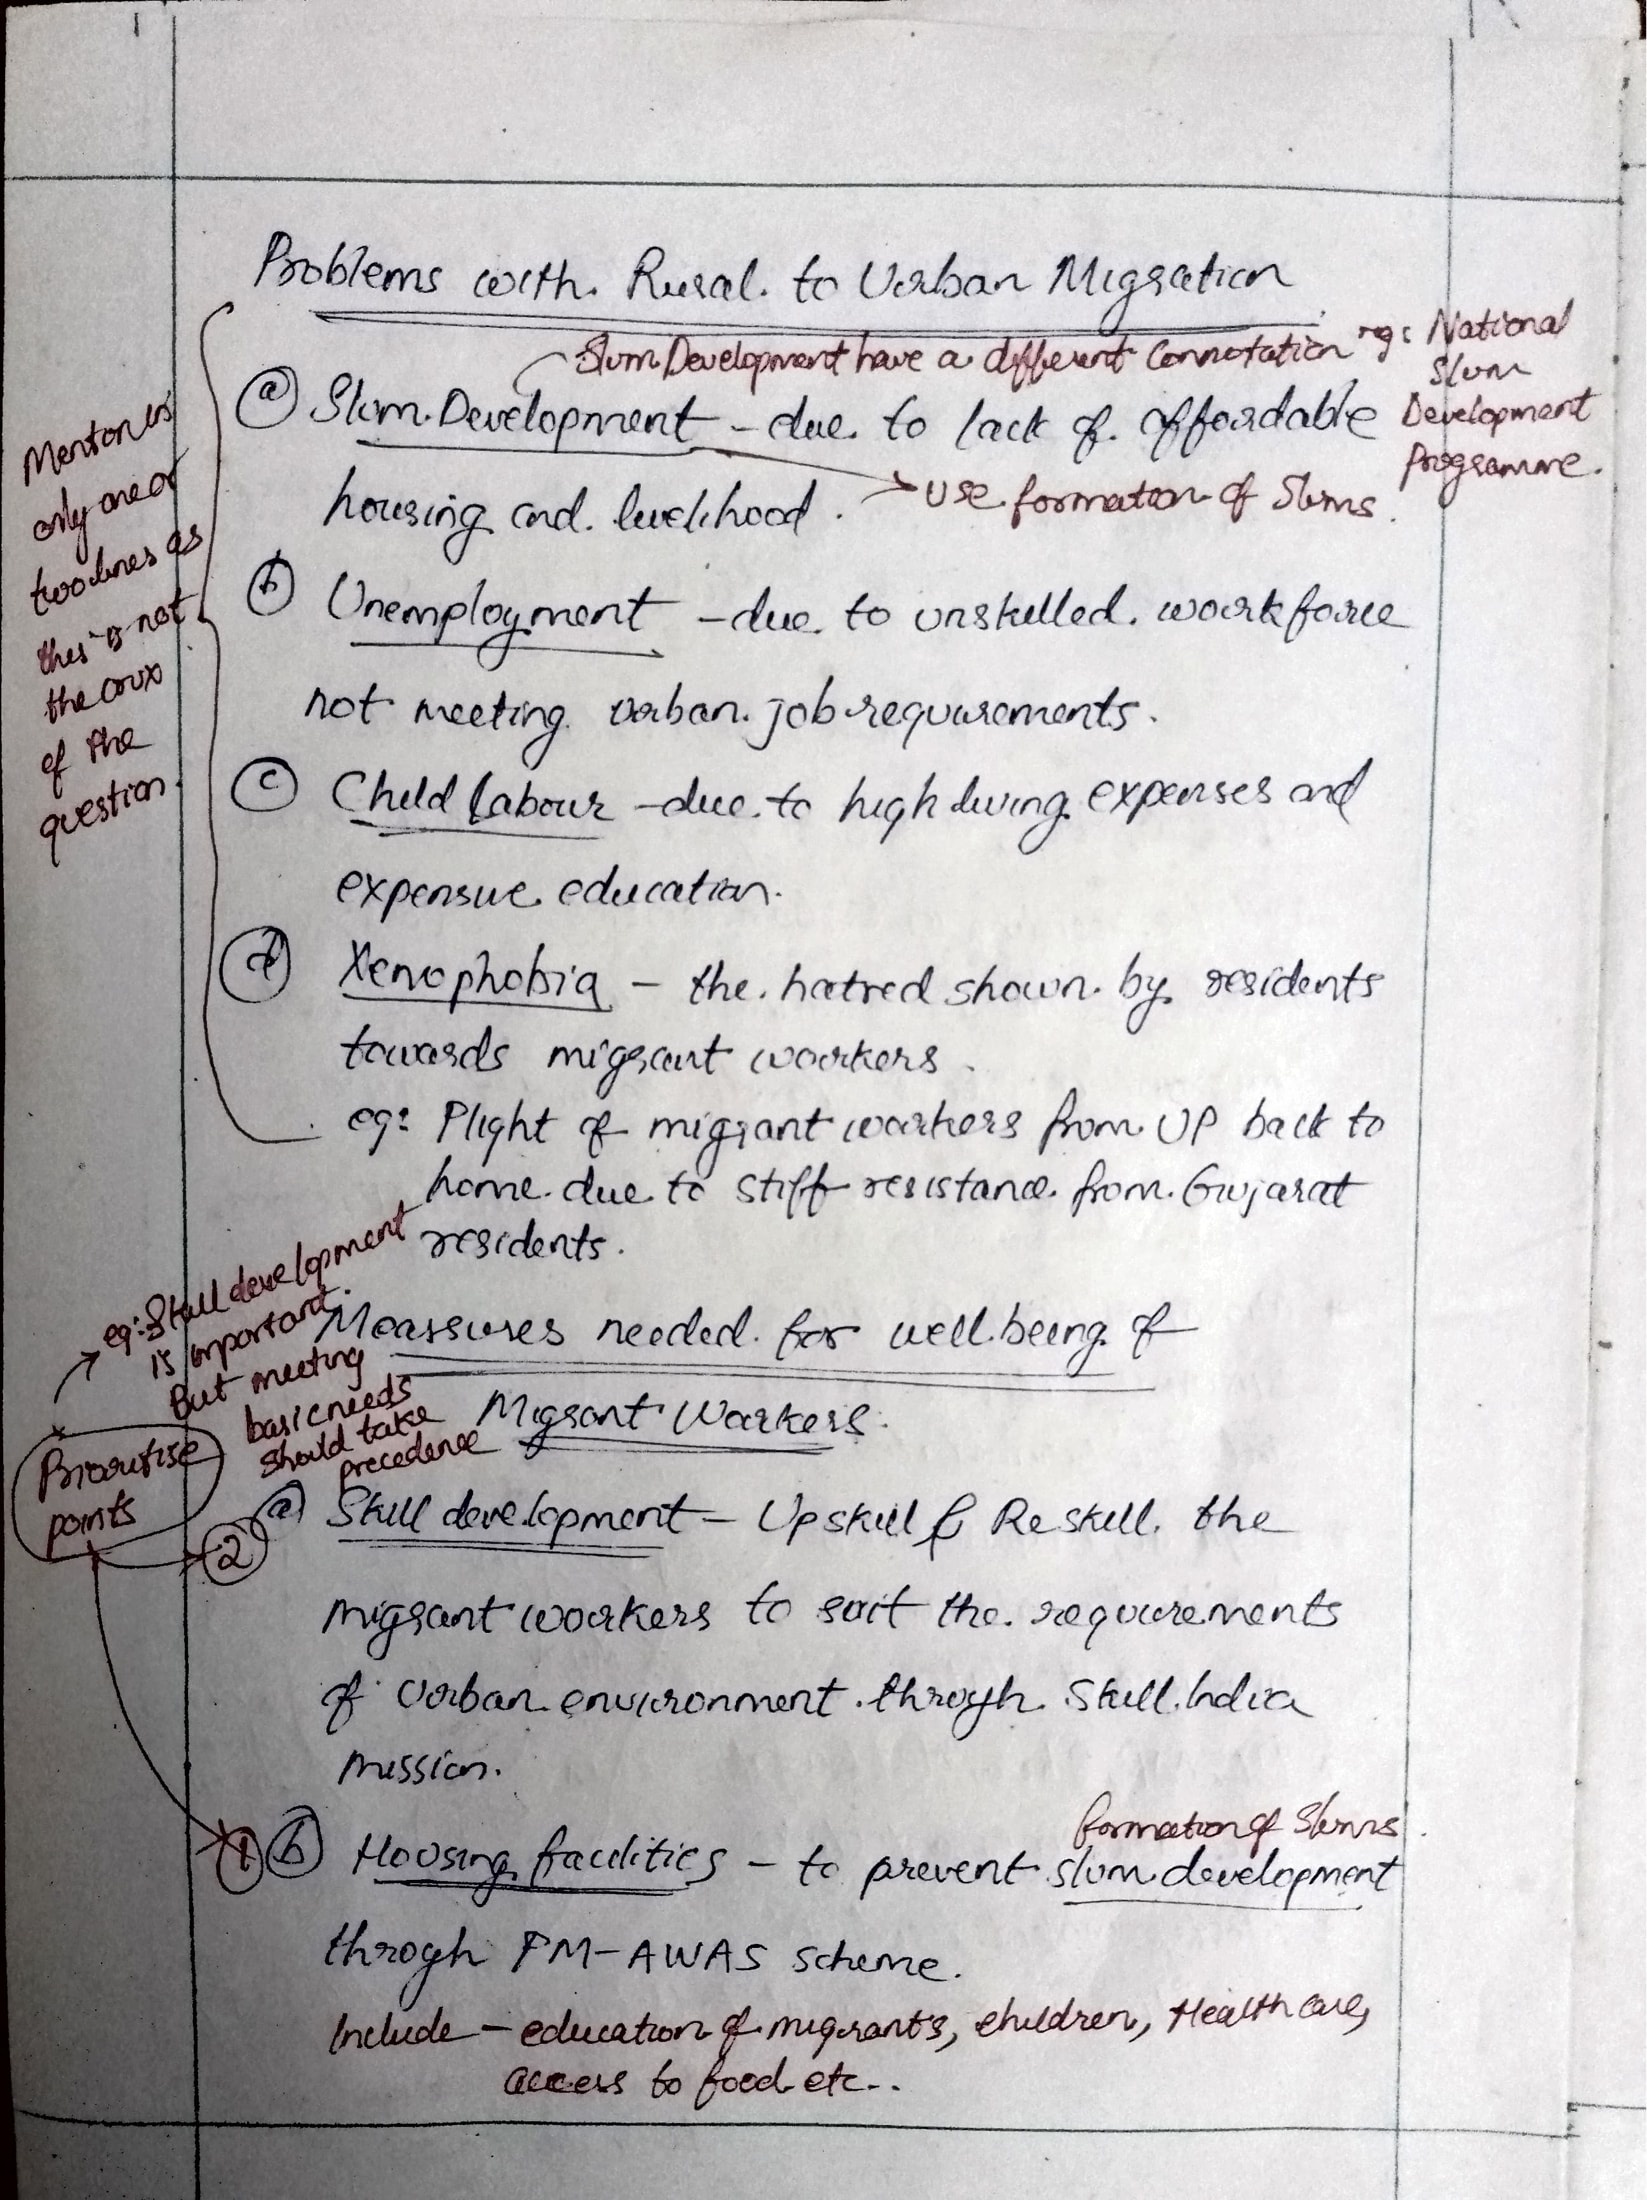 Problems with Rural to Urban Migration
Slum Development have a different Connotation eg: National
Slum
Development
Programme.
(a) Slum Development - due to lack of affordable
housing and livelihood.
Use formation of Slums.
Mention in
only one or
two lines as
this is not
the crux
of the
question.
(b) Unemployment - due to unskilled workforce
not meeting urban job requirements.
(c) Child Labour - due to high living expenses and
expensive education.
(d) Xenophobia - the hatred shown by residents
towards migrant workers.
eg: Plight of migrant workers from UP back to
home due to stiff resistance from Gujarat
residents.
Measures needed for well being of
Migrant Workers.
eg: Skill development
is important.
But meeting
basic needs
should take
precedence
Prioritise
points
2
(a) Skill development - Upskill & Reskill the
migrant workers to suit the requirements
of urban environment through Skill India
mission.
formation of Slums.
1 (b) Housing facilities - to prevent slum development
throgh PM-AWAS scheme.
Include - education of migrants, children, Healthcare,
access to food etc..